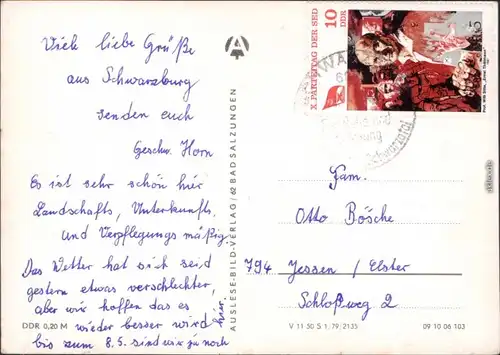 Viele liebe Grüße
aus Schwarzburg
senden euch
Geschw. Horn
Es ist sehr schön hier
Landschafts, Unterkunfts,
und Verpflegungs mäßig.
Das Wetter hat sich seid
gestern etwas verschlechter,
aber wir hoffen das es
wieder besser wird
bis zum 8.5. sind wir ja noch
hier.
DDR 0,20 M
AUSLESE-BILD-VERLAG/62 BAD SALZUNGEN
X. PARTEITAG DER SED
10
DDR
Schwarzatal
Fam.
Otto Bösche
794 Jessen / Elster
Schloßweg 2
V 11 50 S 1/79/2135
09 10 06 103